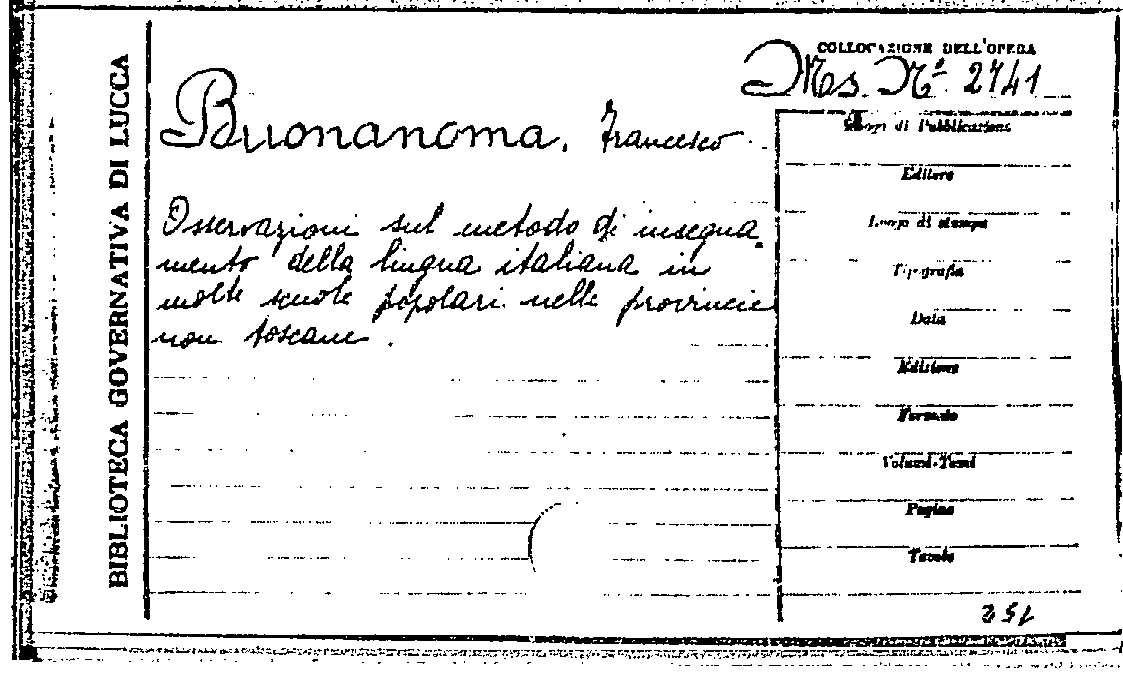 BIBLIOTECA GOVERNATIVA DI LUCCA
COLLOCAZIONE DELL'OPERA
Ms. Nº 2741
Buonanoma, Francesco
Osservazioni sul metodo di insegna-
mento della lingua italiana in
molte scuole popolari nelle provincie
non toscane.
Luogo di Pubblicazione
Editore
Luogo di stampa
Tipografia
Data
Edizione
Formato
Volumi-Tomi
Pagine
Tavole